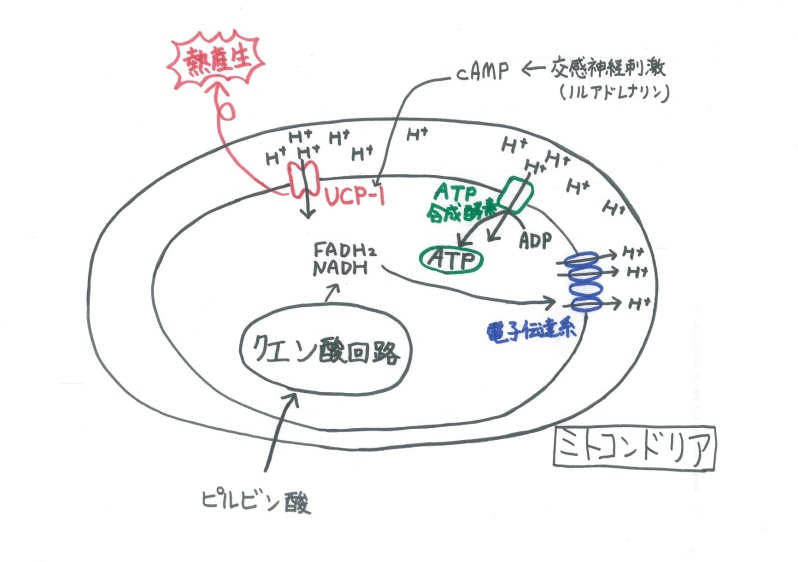 熱産生
cAMP ← 交感神経刺激
(ノルアドレナリン)
H⁺ H⁺ H⁺ H⁺ H⁺ H⁺
H⁺ H⁺ H⁺ H⁺ H⁺
UCP-1
ATP
合成酵素
ADP
ATP
FADH₂
NADH
H⁺
H⁺
H⁺
電子伝達系
クエン酸回路
ミトコンドリア
ピルビン酸